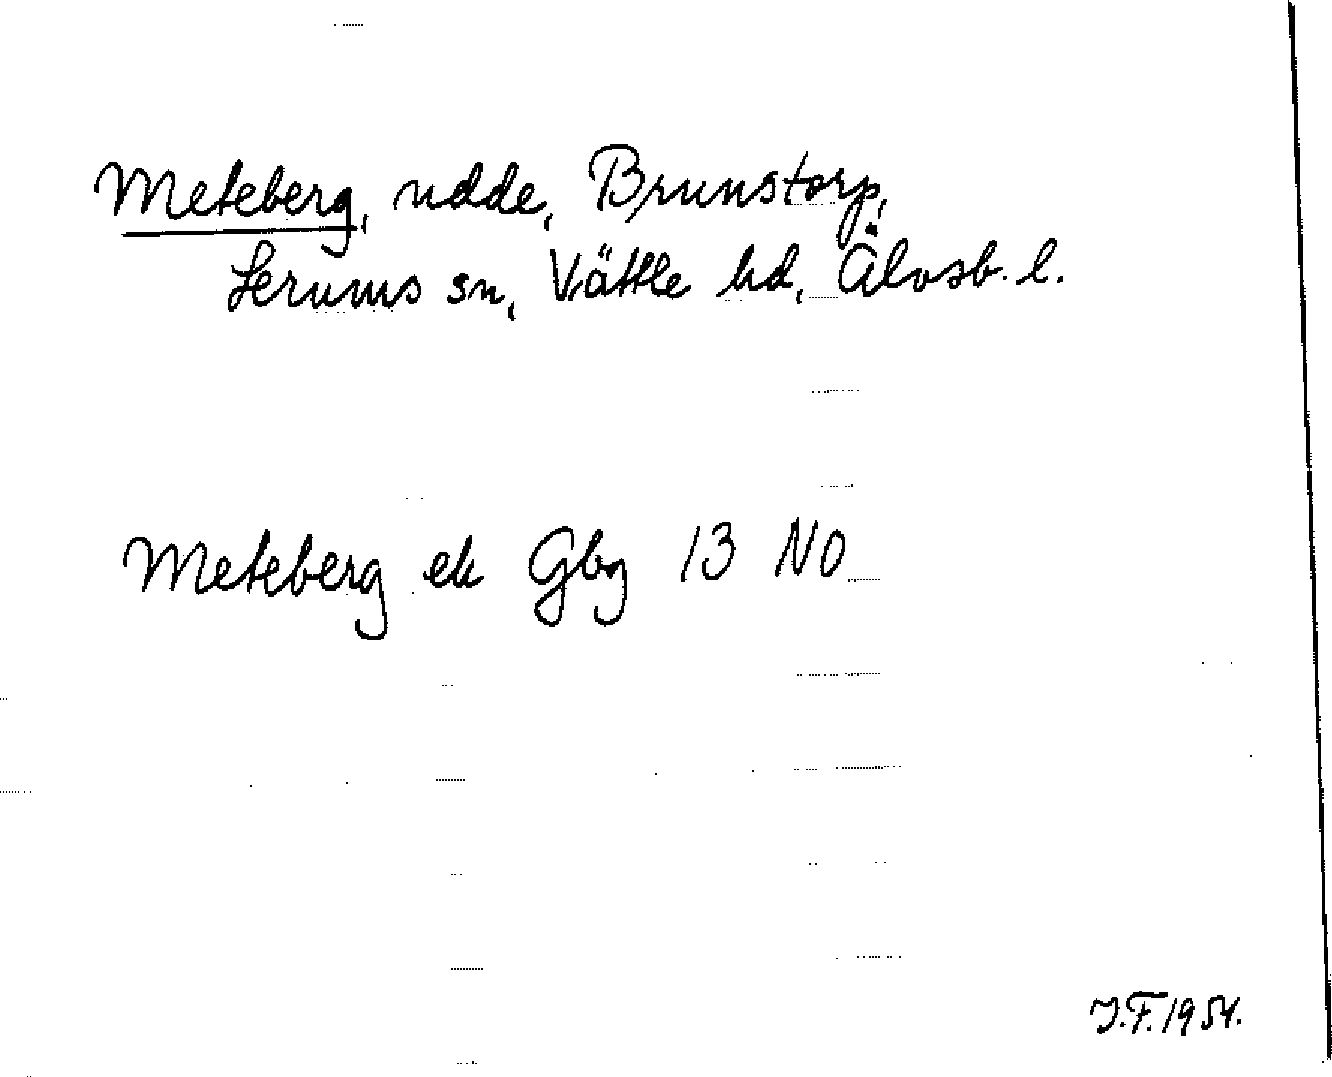 Meteberg, udde, Brunstorp,
Lerums sn, Vättle hd, Älvsb. l.
Meteberg ek Gbg 13 NO
J.F. 1954.